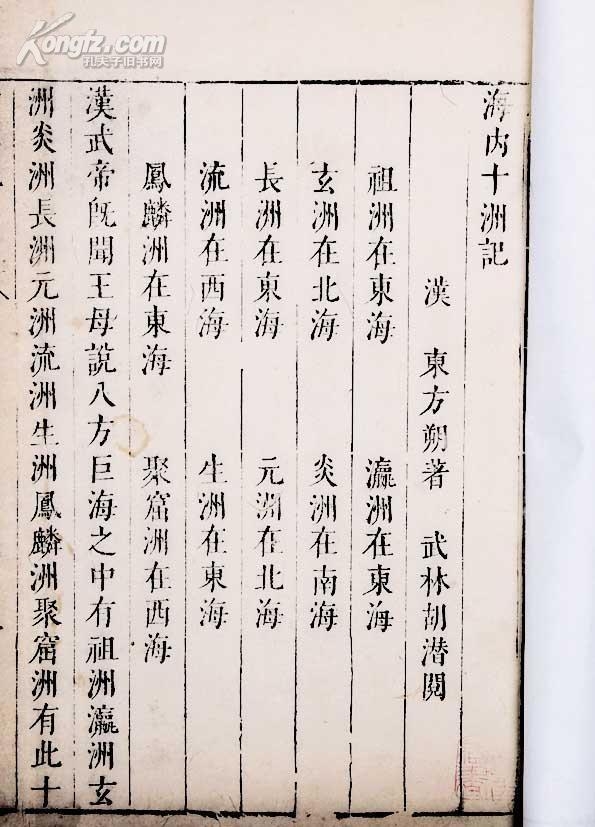 Kongfz.com
孔夫子旧书网
海內十洲記
漢 東方朔著 武林胡潛閱
祖洲在東海 瀛洲在東海
玄洲在北海 炎洲在南海
長洲在東海 元洲在北海
流洲在西海 生洲在東海
鳳麟洲在東海 聚窟洲在西海
漢武帝旣聞王母說八方巨海之中有祖洲瀛洲玄
洲炎洲長洲元洲流洲生洲鳳麟洲聚窟洲有此十